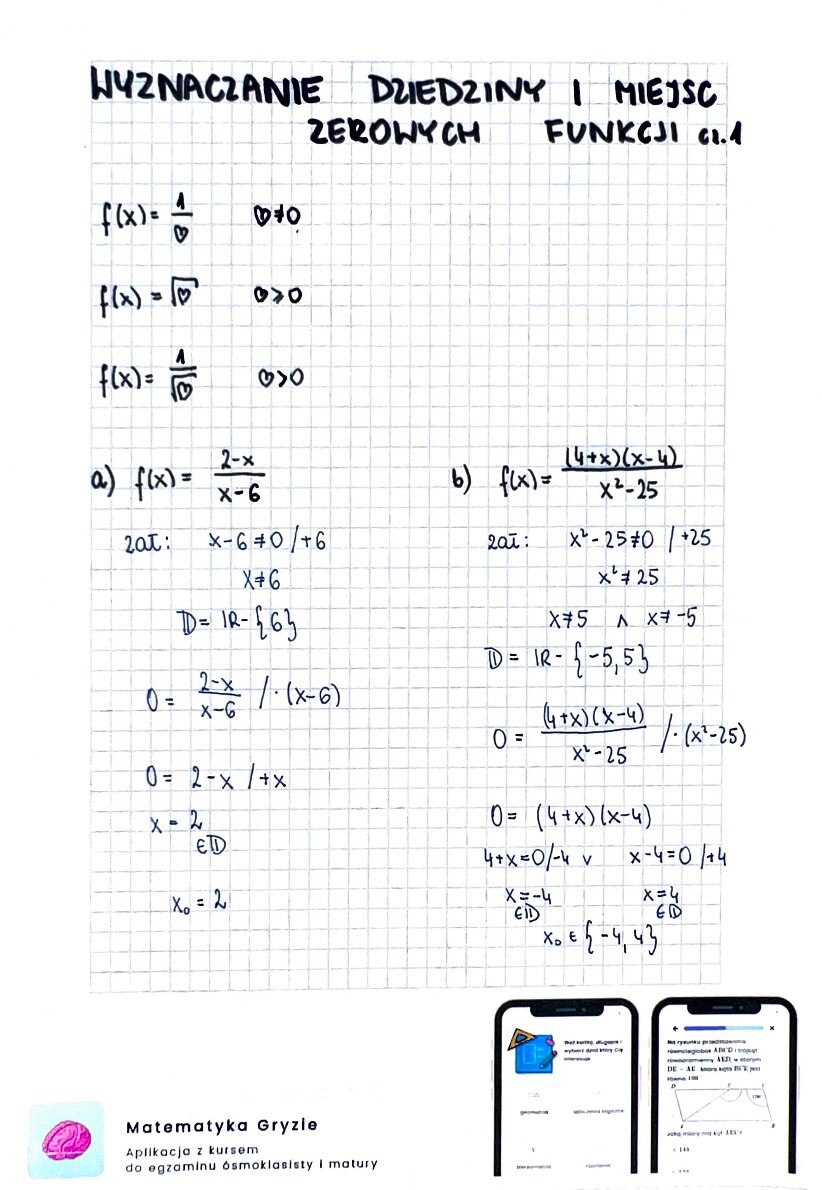 WYZNACZANIE DZIEDZINY I MIEJSC
ZEROWYCH FUNKCJI cz.1
f(x)= 1/♡ ♡≠0
f(x) = √♡ ♡≥0
f(x)= 1/√♡ ♡>0
a) f(x)= (2-x)/(x-6)
zał: x-6≠0 /+6
x≠6
D= IR-{6}
0= (2-x)/(x-6) /·(x-6)
0= 2-x /+x
x = 2
∈D
x₀ = 2
b) f(x)= (4+x)(x-4)/(x²-25)
zał: x²-25≠0 /+25
x²≠25
x≠5 ∧ x≠-5
D= IR-{-5,5}
0= (4+x)(x-4)/(x²-25) /·(x²-25)
0= (4+x)(x-4)
4+x=0/-4 ∨ x-4=0/+4
x=-4 x=4
∈D ∈D
x₀ ∈ {-4,4}
Matematyka Gryzie
Aplikacja z kursem
do egzaminu ósmoklasisty i matury
geometria
stereometria
Na rysunku przedstawiono
równoległobok ABCD i trójkąt
równoramienny AED, w którym
DE = AE. Miara kąta BCE jest
równa 108°
D E C
108°
A B
Jaką miarę ma kąt AEC?